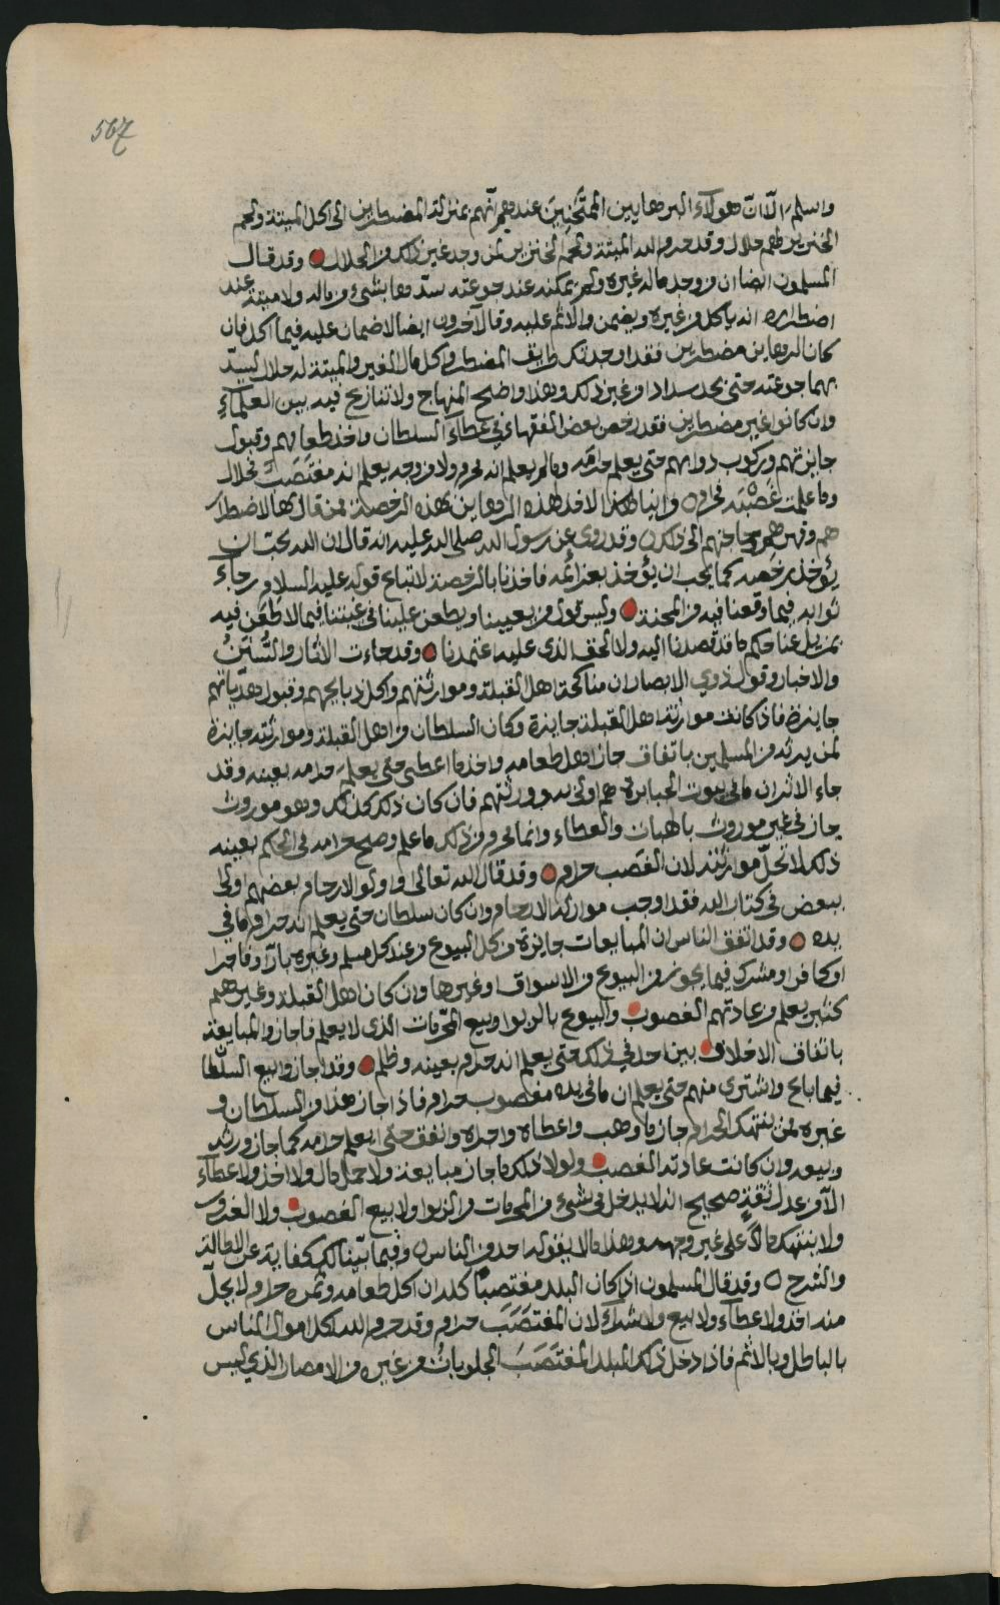 567
وسلم الا ان هولاء البرهايين الممتحنين عندهم انهم بمنزلة المضطرين الى اكل الميتة ولحم
الخنزير فلهم حلال وقد حرم الله الميتة ولحم الخنزير لمن وجد غير ذلك من الحلال وقد قال
المسلمون ايضا ان من وجد مال غيره ولم يمكنه عند جوعته سد فمها بشيء من ماله ولا ميتة عند
اضطراره انه ياكل من غيره ويضمن والاثم عليه وقال آخرون ايضا لا ضمان عليه فيما اكل فان
كان البرهاين مضطرين فقد اوجدتك طريق المضطر واكل مال الغير والميتة له حلال ليسدّ
بهما جوعته حتى يجد سدادا من غير ذلك وهذا واضح المنهاج ولا تنازع فيه بين العلماء
وان كانوا غير مضطرين فقد رخص بعض الفقهاء في عطاء السلطان واخذ طعامهم وقبول
جايزتهم وركوب دوابهم حتى يعلم حرامه وما لم يعلم انه محرم ولا من وجه يعلم انه مغتصب فحلال
وما علمت غصبه فحرام وانما هذا لاخذ هذه البرهاين بهذه الرخصة من قال بها لاضطرار
هم وقهرهم وحاجتهم الى ذلك وقد روى عن رسول الله صلى الله عليه انه قال ان الله يحب ان
يؤخذ برخصه كما يحب ان يؤخذ بعزائمه فاخذنا بالرخصة لاتباع قوله عليه السلام رجاء
ثوابه فيما وقعنا فيه من المحنة وليس قول من يعيبنا ويطعن علينا في غيبتنا فيما لا طعن فيه
بمزيل عنا حكم ما قد قصدنا اليه ولا الحق الذي عليه اعتمدنا وقد جاءت الاثار والسنن
والاخبار وقول ذوي الابصار ان مناكحة اهل القبلة وموارثتهم واكل ذبايحهم وقبول هدياتهم
جايزة فاذا كانت موارثة اهل القبلة جايزة وكان السلطان من اهل القبلة وموارثته جايزة
لمن يرثه من المسلمين باتفاق جاز اكل طعامه واخذ ما اعطى حتى يعلم حرامه بعينه وقد
جاء الاثر ان ما في بيوت الجبابرة هم اولى به وورثتهم فان كان ذلك كذلك وهو موروث
جاز في غير موروث بالهبات والعطاء وانما يحرم من ذلك ما علم وصح حرامه في الحكم بعينه
ذلك لا تحلّ موارثته لان الغصب حرام وقد قال الله تعالى واولو الارحام بعضهم اولى
ببعض في كتاب الله فقد اوجب موارثة الارحام وان كان سلطان حتى يعلم انه حرام ما في
يده وقد اتفق الناس ان المبايعات جايزة من كل البيوع من عند كل مسلم وغيره بارّا وفاجرا
او كافر او مشرك فيما يجوز من البيوع من الاسواق وغيرها وان كان اهل القبلة وغيرهم
كثير يعلم من عادتهم الغصوب والبيوع بالربوا وبيع المحرمات الذي لا يعلم فاجازوا المبايعة
باتفاق لاخلاف بين احد في ذلك حتى يعلم انه حرم بعينه وظلم وقد اجازوا بيع السلطا
فيما باع واشترى منهم حتى يعلم ان ما في يده مغصوب حرام فاذا جاز هذا من السلطان و
غيره لمن ينتهك الحرام جاز ما وهب واعطاه واجره وانفق حتى يعلم حرامه كما جاز ورثه
وبيعه وان كانت عادته الغصب ولولا ذلك ما جاز مبايعة ولا حمل مال ولا اخذ ولا عطاء
الا من عدل ثقة صحيح انه لا يدخل في شيء من المحرمات من الربوا ولا بيع الغصوب ولا الغدر
ولا ينتهك مالاً على غير وجهه وهذا ما لا يقوله احد من الناس وفيما بيّنا لك كفاية عن الاطالة
والشرح وقد قال المسلمون اذا كان البلد مغتصبا كله ان اكل طعامه وثمره حرام لا يحلّ
منه اخذ ولا عطاء ولا بيع ولا شراء لان المغتصب حرام وقد حرم الله اكل اموال الناس
بالباطل وبالاثم فاذا دخل ذلك البلد المغتصب الجلوبات من غيره من الامصار الذي ليس